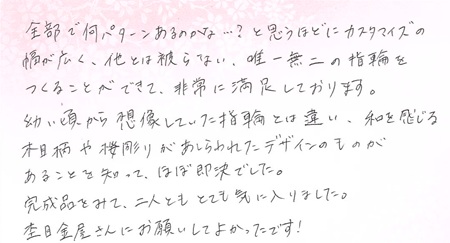 全部で何パターンあるのかな…?と思うほどにカスタマイズの
幅が広く、他とは被らない、唯一無二の指輪を
つくることができて、非常に満足しております。
幼い頃から想像していた指輪とは違い、和を感じる
木目柄や桜彫りがあしらわれたデザインのものが
あることを知って、ほぼ即決でした。
完成品をみて、二人ともとても気に入りました。
杢目金屋さんにお願いしてよかったです!